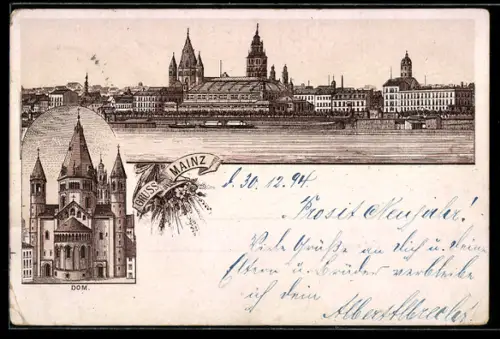 GRUSS AUS MAINZ
DOM.
d. 30. 12. 94.
Prosit Neujahr!
Viele Grüße an dich u. deine
Eltern u. Brüder verbleibe
ich dein
Albert